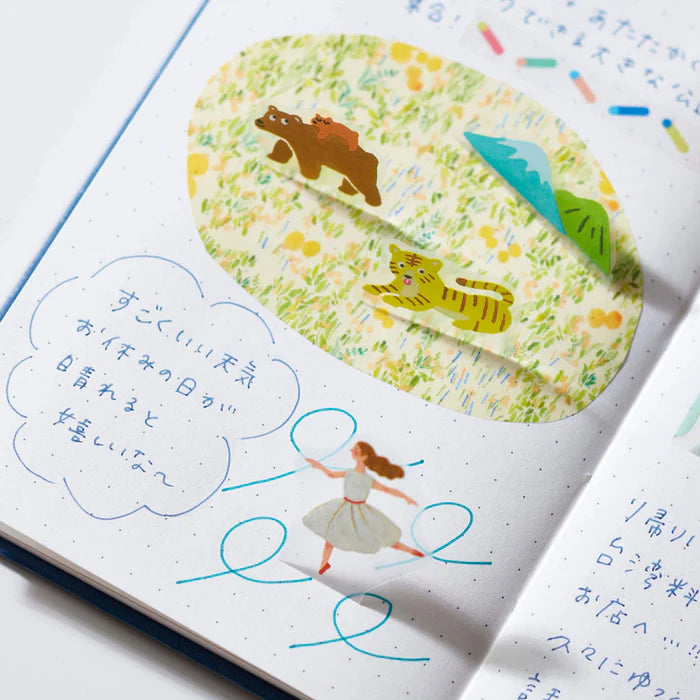 あたたかく
集合！
できる大きな公
すごくいい天気
お休みの日が
晴れると
嬉しいな〜
帰り
台湾料
お店へ…
久々にゆ